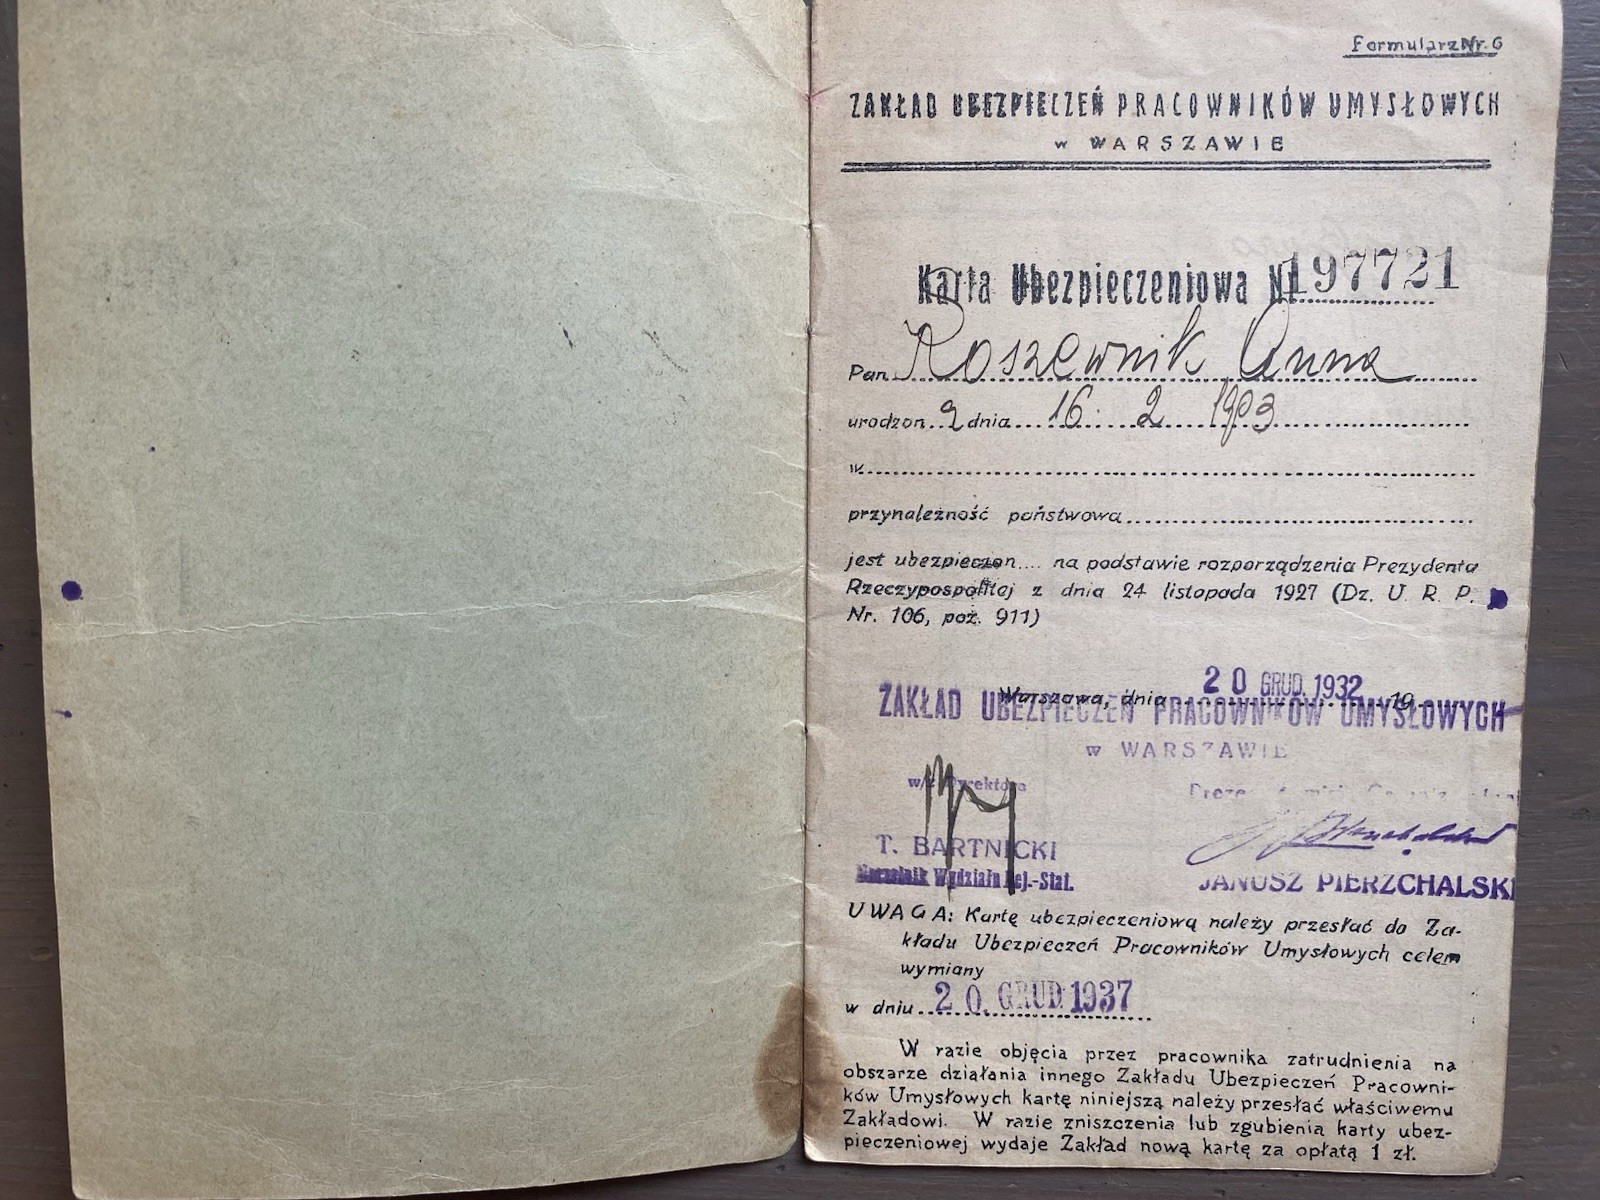 Formularz Nr. 6
ZAKŁAD UBEZPIECZEŃ PRACOWNIKÓW UMYSŁOWYCH
w WARSZAWIE
Karta Ubezpieczeniowa Nr 197721
Pan Roszewnik Anna
urodzon a dnia 16. 2 1903
w
przynależność państwowa
jest ubezpieczon.... na podstawie rozporządzenia Prezydenta
Rzeczypospolitej z dnia 24 listopada 1927 (Dz. U. R. P.
Nr. 106, poz. 911)
Warszawa, dnia 20 GRUD. 1932 19
ZAKŁAD UBEZPIECZEŃ PRACOWNIKÓW UMYSŁOWYCH
w WARSZAWIE
w/z Dyrektora
T. BARTNICKI
Naczelnik Wydziału Rej.-Stat.
JANUSZ PIERZCHALSKI
UWAGA: Kartę ubezpieczeniową należy przesłać do Za-
kładu Ubezpieczeń Pracowników Umysłowych celem
wymiany
w dniu 20. GRUD 1937
W razie objęcia przez pracownika zatrudnienia na
obszarze działania innego Zakładu Ubezpieczeń Pracowni-
ków Umysłowych kartę niniejszą należy przesłać właściwemu
Zakładowi. W razie zniszczenia lub zgubienia karty ubez-
pieczeniowej wydaje Zakład nową kartę za opłatą 1 zł.